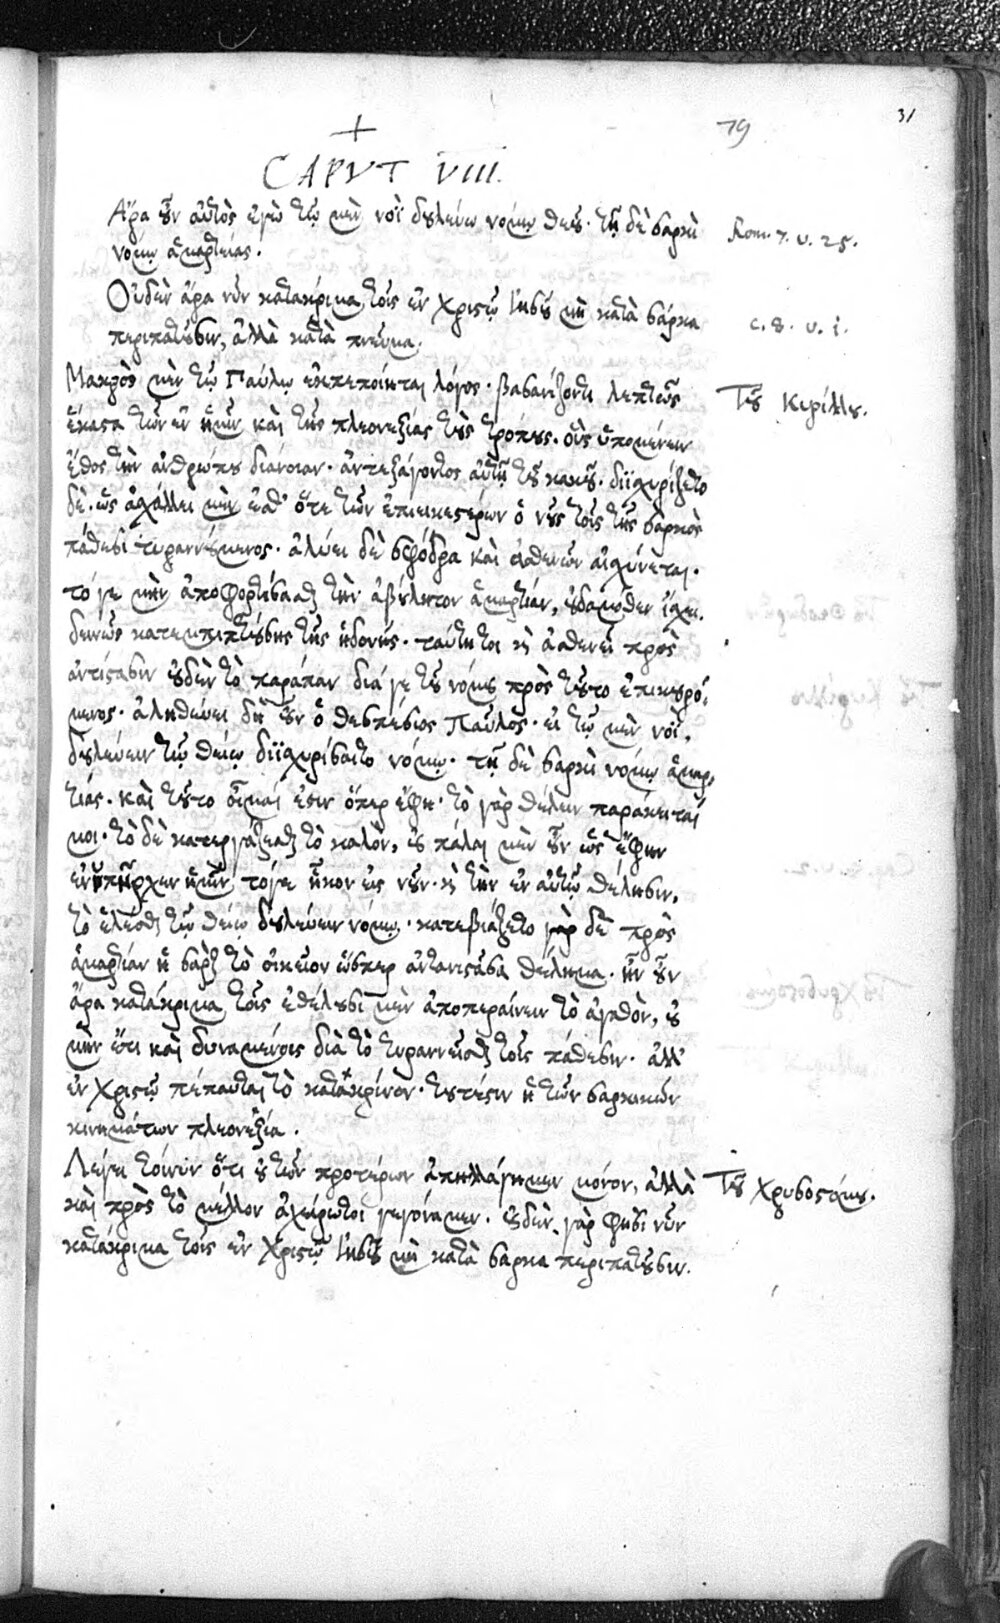 31
79
+
CAPVT VIII.
Ἄρα οὖν αὐτὸς ἐγὼ τῷ μὲν νοῒ δουλεύω νόμῳ θεοῦ· τῇ δὲ σαρκὶ
Rom. 7. v. 25.
νόμῳ ἁμαρτίας.
Οὐδὲν ἄρα νῦν κατάκριμα τοῖς ἐν Χριστῷ Ἰησοῦ μὴ κατὰ σάρκα
c. 8. v. 1.
περιπατοῦσιν, ἀλλὰ κατὰ πνεῦμα.
Μακρὸς μὲν τῷ Παύλῳ ἐκπεποίηται λόγος· βασανίζοντι λεπτῶς
Τοῦ Κυρίλλου.
ἕκαστα τῶν ἐν ἡμῖν καὶ τῆς πλεονεξίας τοὺς τρόπους. οὓς ὑπομένειν
ἔθος τὴν ἀνθρώπου διάνοιαν· ἀντεξάγοντος αὐτῇ τοῦ κακοῦ· διϊσχυρίζετο
δὲ. ὡς ἀσχάλλει μὲν ἔσθ' ὅτε τῶν ἐπιεικεστέρων ὁ νοῦς τοῖς τῆς σαρκὸς
πάθεσι τυραννούμενος· ἀλύει δὲ σφόδρα καὶ ἀσθενῶν αἰσχύνεται.
τό γε μὴν ἀποφορτίσασθαι τὴν ἀβούλητον ἁμαρτίαν, οὐδαμόθεν ἔχει.
δεινῶς κατεμπιπτούσης τῆς ἡδονῆς· ταύτῃτοι καὶ ἀσθενεῖ πρὸς
ἀντίστασιν οὐδὲν τὸ παράπαν διά γε τοῦ νόμου πρὸς τοῦτο ἐπικουρού-
μενος· ἀληθεύει δὴ οὖν ὁ θεσπέσιος Παῦλος· εἰ τῷ μὲν νοῒ,
δουλεύειν τῷ θείῳ διϊσχυρίσαιτο νόμῳ· τῇ δὲ σαρκὶ νόμῳ ἁμαρ-
τίας. καὶ τοῦτο οἶμαί ἐστιν ὅπερ ἔφη· τὸ γὰρ θέλειν παράκειταί
μοι· τὸ δὲ κατεργάζεσθαι τὸ καλὸν, οὐ πάλαι μὲν οὖν ὡς ἔφην
ἐνυπῆρχεν ἡμῖν, τό γε ἧκον εἰς νοῦν· καὶ τὴν ἐν αὐτῷ θέλησιν,
τὸ ἑλέσθαι τῷ θείῳ δουλεύειν νόμῳ. κατεβιάζετο γὰρ δὲ πρὸς
ἁμαρτίαν ἡ σὰρξ τὸ οἰκεῖον ὥσπερ ἀντανιστᾶσα θέλημα. ἦν οὖν
ἄρα κατάκριμα τοῖς ἐθέλουσι μὲν ἀποπεραίνειν τὸ ἀγαθὸν, οὐ
μὴν ἔτι καὶ δυναμένοις διὰ τὸ τυραννεῖσθαι τοῖς πάθεσιν· ἀλλ'
ἐν Χριστῷ πέπαυται τὸ κατακρῖνον· τουτέστιν ἡ τῶν σαρκικῶν
κινημάτων πλεονεξία.
Λέγει τοίνυν ὅτι οὐ τῶν προτέρων ἀπηλλάγημεν μόνον, ἀλλὰ
Τοῦ Χρυσοστόμου.
καὶ πρὸς τὸ μέλλον ἀχείρωτοι γεγόναμεν. οὐδὲν γὰρ φησι νῦν
κατάκριμα τοῖς ἐν Χριστῷ Ἰησοῦ μὴ κατὰ σάρκα περιπατοῦσιν.